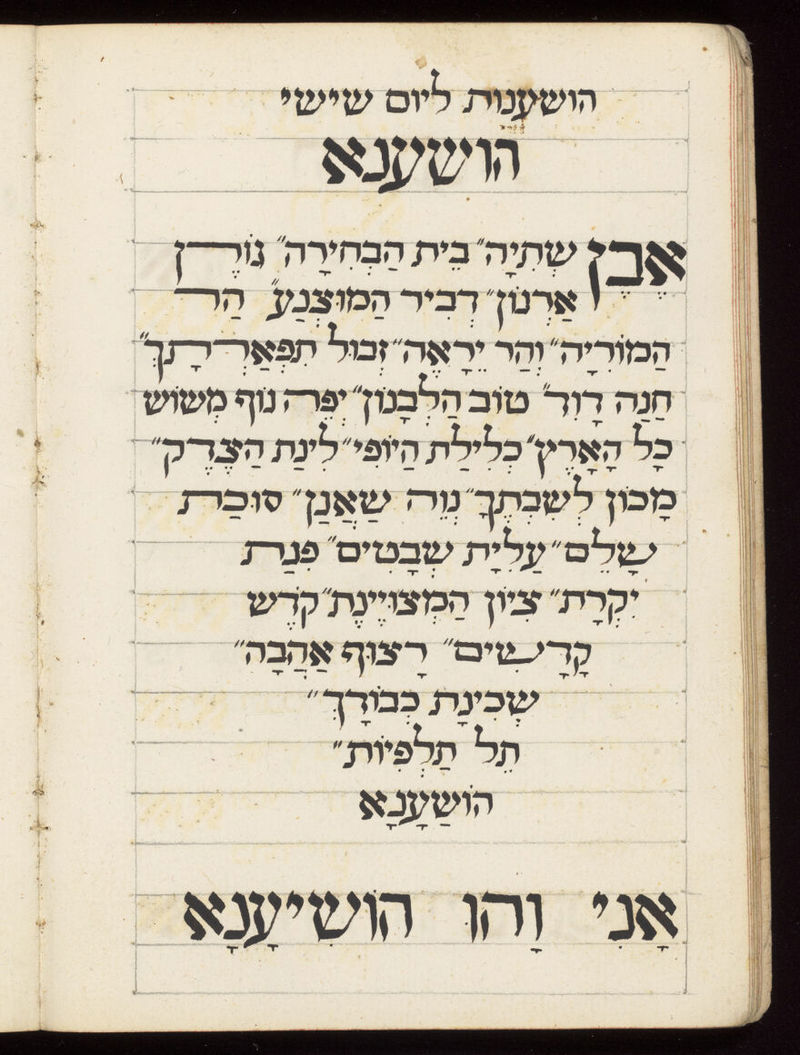 הושענות ליום שישי
הושענא
אֶבֶן שְׁתִיָה״ בֵּית הַבְּחִירָה״ גּוֹרֶן
אַרְנוֹן״ דְּבִיר הַמוּצְנַע״ הַר
הַמּוֹרִיָה״ וְהַר יֵרָאֶה״ זְבוּל תִּפְאַרְתָּךְ״
חָנָה דָוִד״ טוֹב הַלְּבָנוֹן״ יְפֵה נוֹף מְשׂוֹשׂ
כָּל הָאָרֶץ״ כְּלִילַת הַיּוֹפִי״ לִינַת הַצֶּדֶק״
מָכוֹן לְשִׁבְתְּךָ״ נְוֵה שַׁאֲנַן״ סוּכַּת
שָׁלֵם״ עֲלִיַּת שְׁבָטִים״ פִּנַּת
יִקְרַת״ צִיּוֹן הַמְצוּיֶּינֶת״ קֹדֶשׁ
קָדָשִׁים״ רָצוּף אַהֲבָה״
שְׁכִינַת כְּבוֹדָךְ״
תֵּל תַּלְפִּיּוֹת״
הוֹשַׁעֲנָא
אֲנִי וָהוּ הוֹשִׁיעָנָא